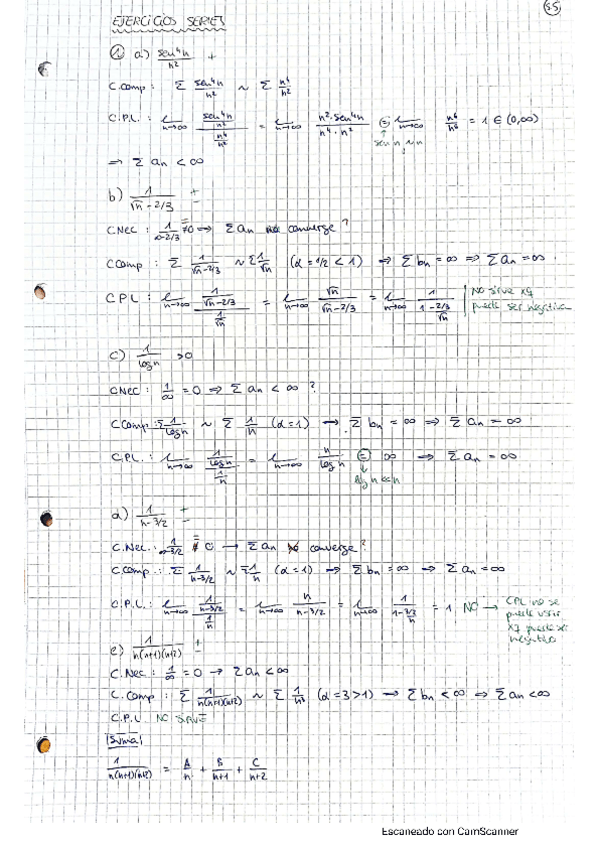 35
EJERCICIOS SERIES
① a) sen⁴n/n² +
C.comp: Σ sen⁴n/n² ~ Σ n⁴/n²
C.P.L: L n→∞ (sen⁴n/n²)/(n⁴/n²) = L n→∞ n²·sen⁴n/(n⁴·n²) = L n→∞ n⁶/n⁶ = 1 ∈ (0,∞)
sen n ~ n
⇒ Σ an < ∞
b) 1/(√n - 2/3) ±
C.Nec: 1/(∞-2/3) = 0 → Σ an converge?
C.Comp: Σ 1/(√n-2/3) ~ Σ 1/√n (α = 1/2 < 1) → Σ bn = ∞ ⇒ Σ an = ∞
CPL: L n→∞ (1/(√n-2/3))/(1/√n) = L n→∞ √n/(√n-2/3) = L n→∞ 1/(1-(2/3)/√n) | No sirve xq puede ser negativa
c) 1/log n >0
C.Nec: 1/∞ = 0 → Σ an < ∞ ?
C.Comp: Σ 1/log n ~ Σ 1/n (α=1) → Σ bn = ∞ ⇒ Σ an = ∞
C.P.L.: L n→∞ (1/log n)/(1/n) = L n→∞ n/log n = ∞ → Σ an = ∞
log n << n
d) 1/(n-3/2) ±
C.Nec.: 1/(∞-3/2) = 0 → Σ an converge?
C.comp.: Σ 1/(n-3/2) ~ Σ 1/n (α=1) → Σ bn = ∞ → Σ an = ∞
C.P.L: L n→∞ (1/(n-3/2))/(1/n) = L n→∞ n/(n-3/2) = L n→∞ 1/(1-(3/2)/n) = 1 NO → CPL no se puede usar xq puede ser negativo
e) 1/(n(n+1)(n+2)) ±
C.Nec: 1/∞ = 0 → Σ an < ∞
C.Comp: Σ 1/(n(n+1)(n+2)) ~ Σ 1/n³ (α=3>1) → Σ bn < ∞ ⇒ Σ an < ∞
C.P.L NO SIRVE
Suma
1/(n(n+1)(n+2)) = A/n + B/(n+1) + C/(n+2)
Escaneado con CamScanner